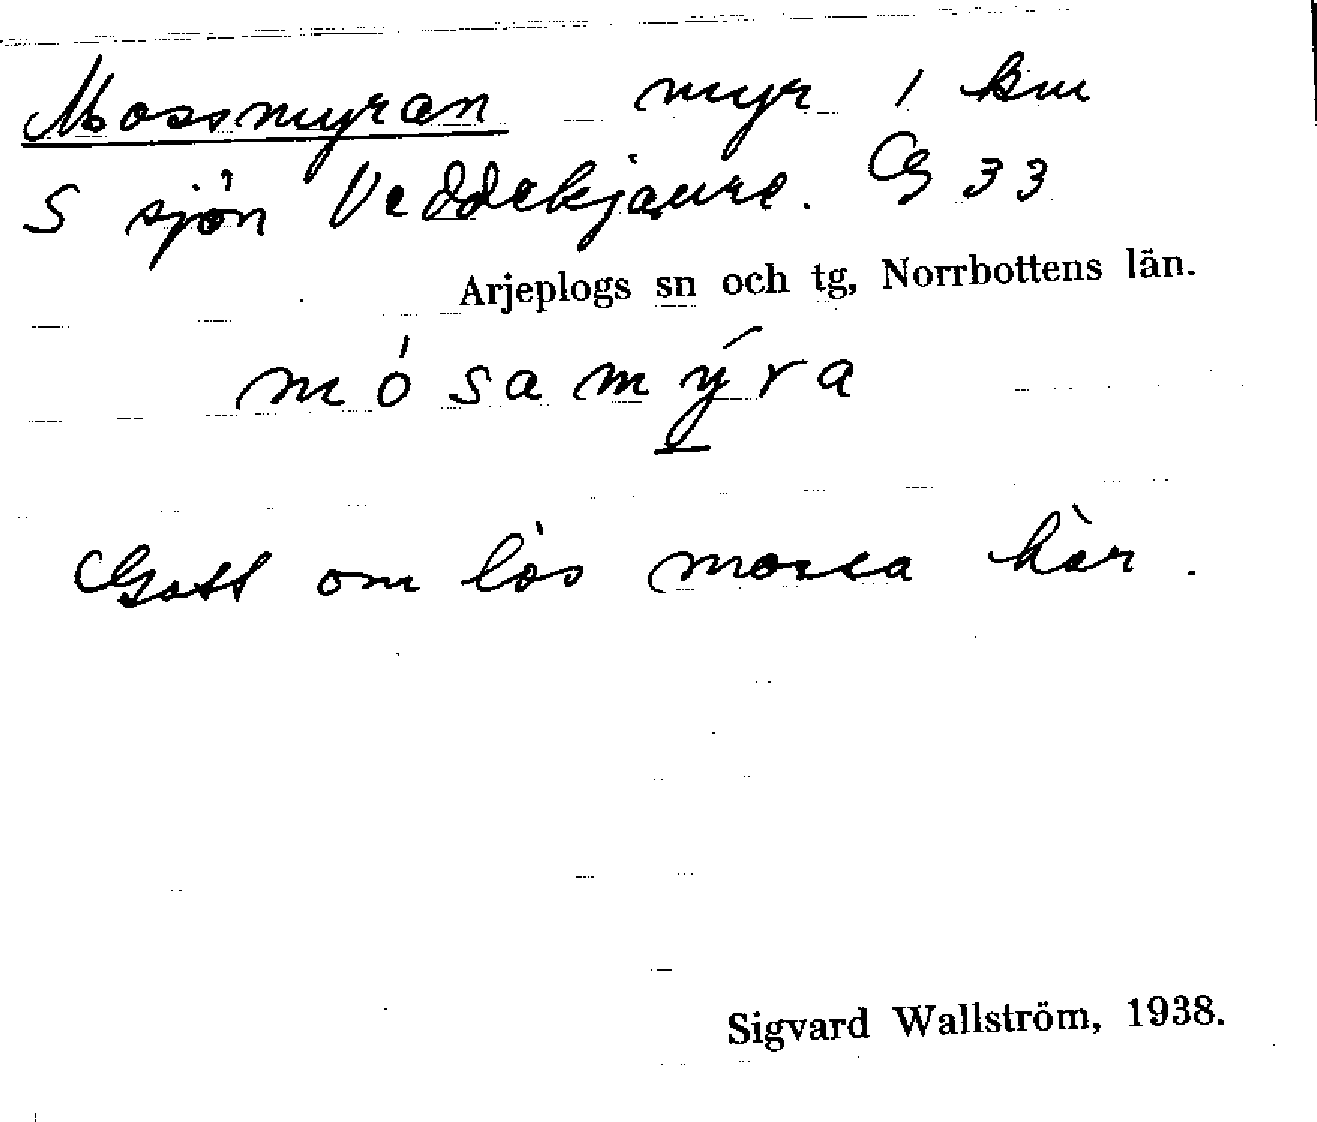 Mossmyran myr 1 km
S sjön Veddekjaure. G 33
Arjeplogs sn och tg, Norrbottens län.
mósamýra
Gott om lös mossa här.
Sigvard Wallström, 1938.